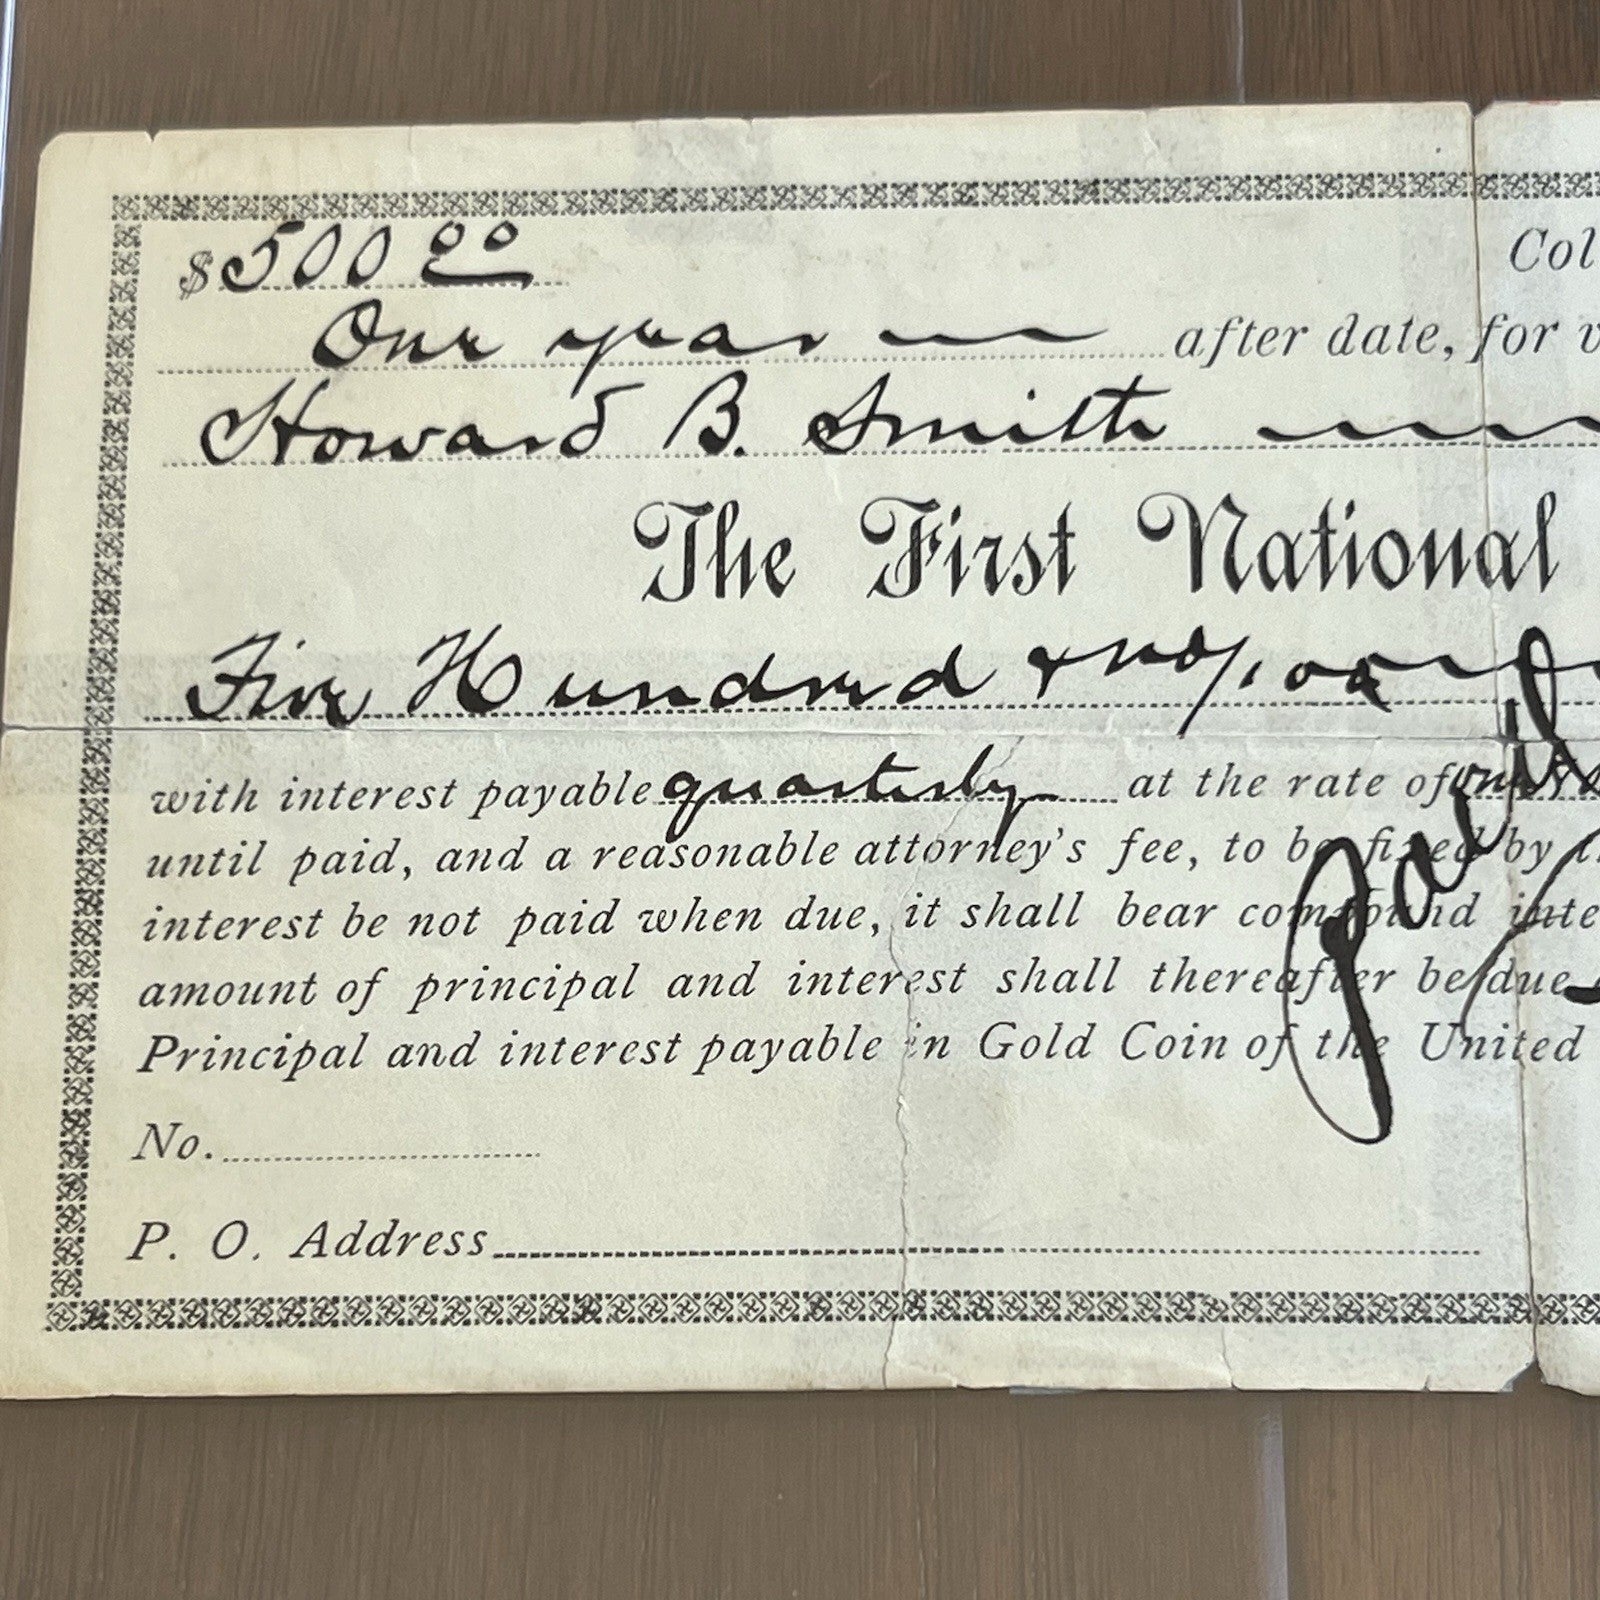 $500 00 Col
One year after date, for v
Howard B. Smith
The First National
Five Hundred & no/100
with interest payable quarterly at the rate of
until paid, and a reasonable attorney's fee, to be fixed by
interest be not paid when due, it shall bear compound inte
amount of principal and interest shall thereafter be due
Principal and interest payable in Gold Coin of the United
No.
P. O. Address
Paid